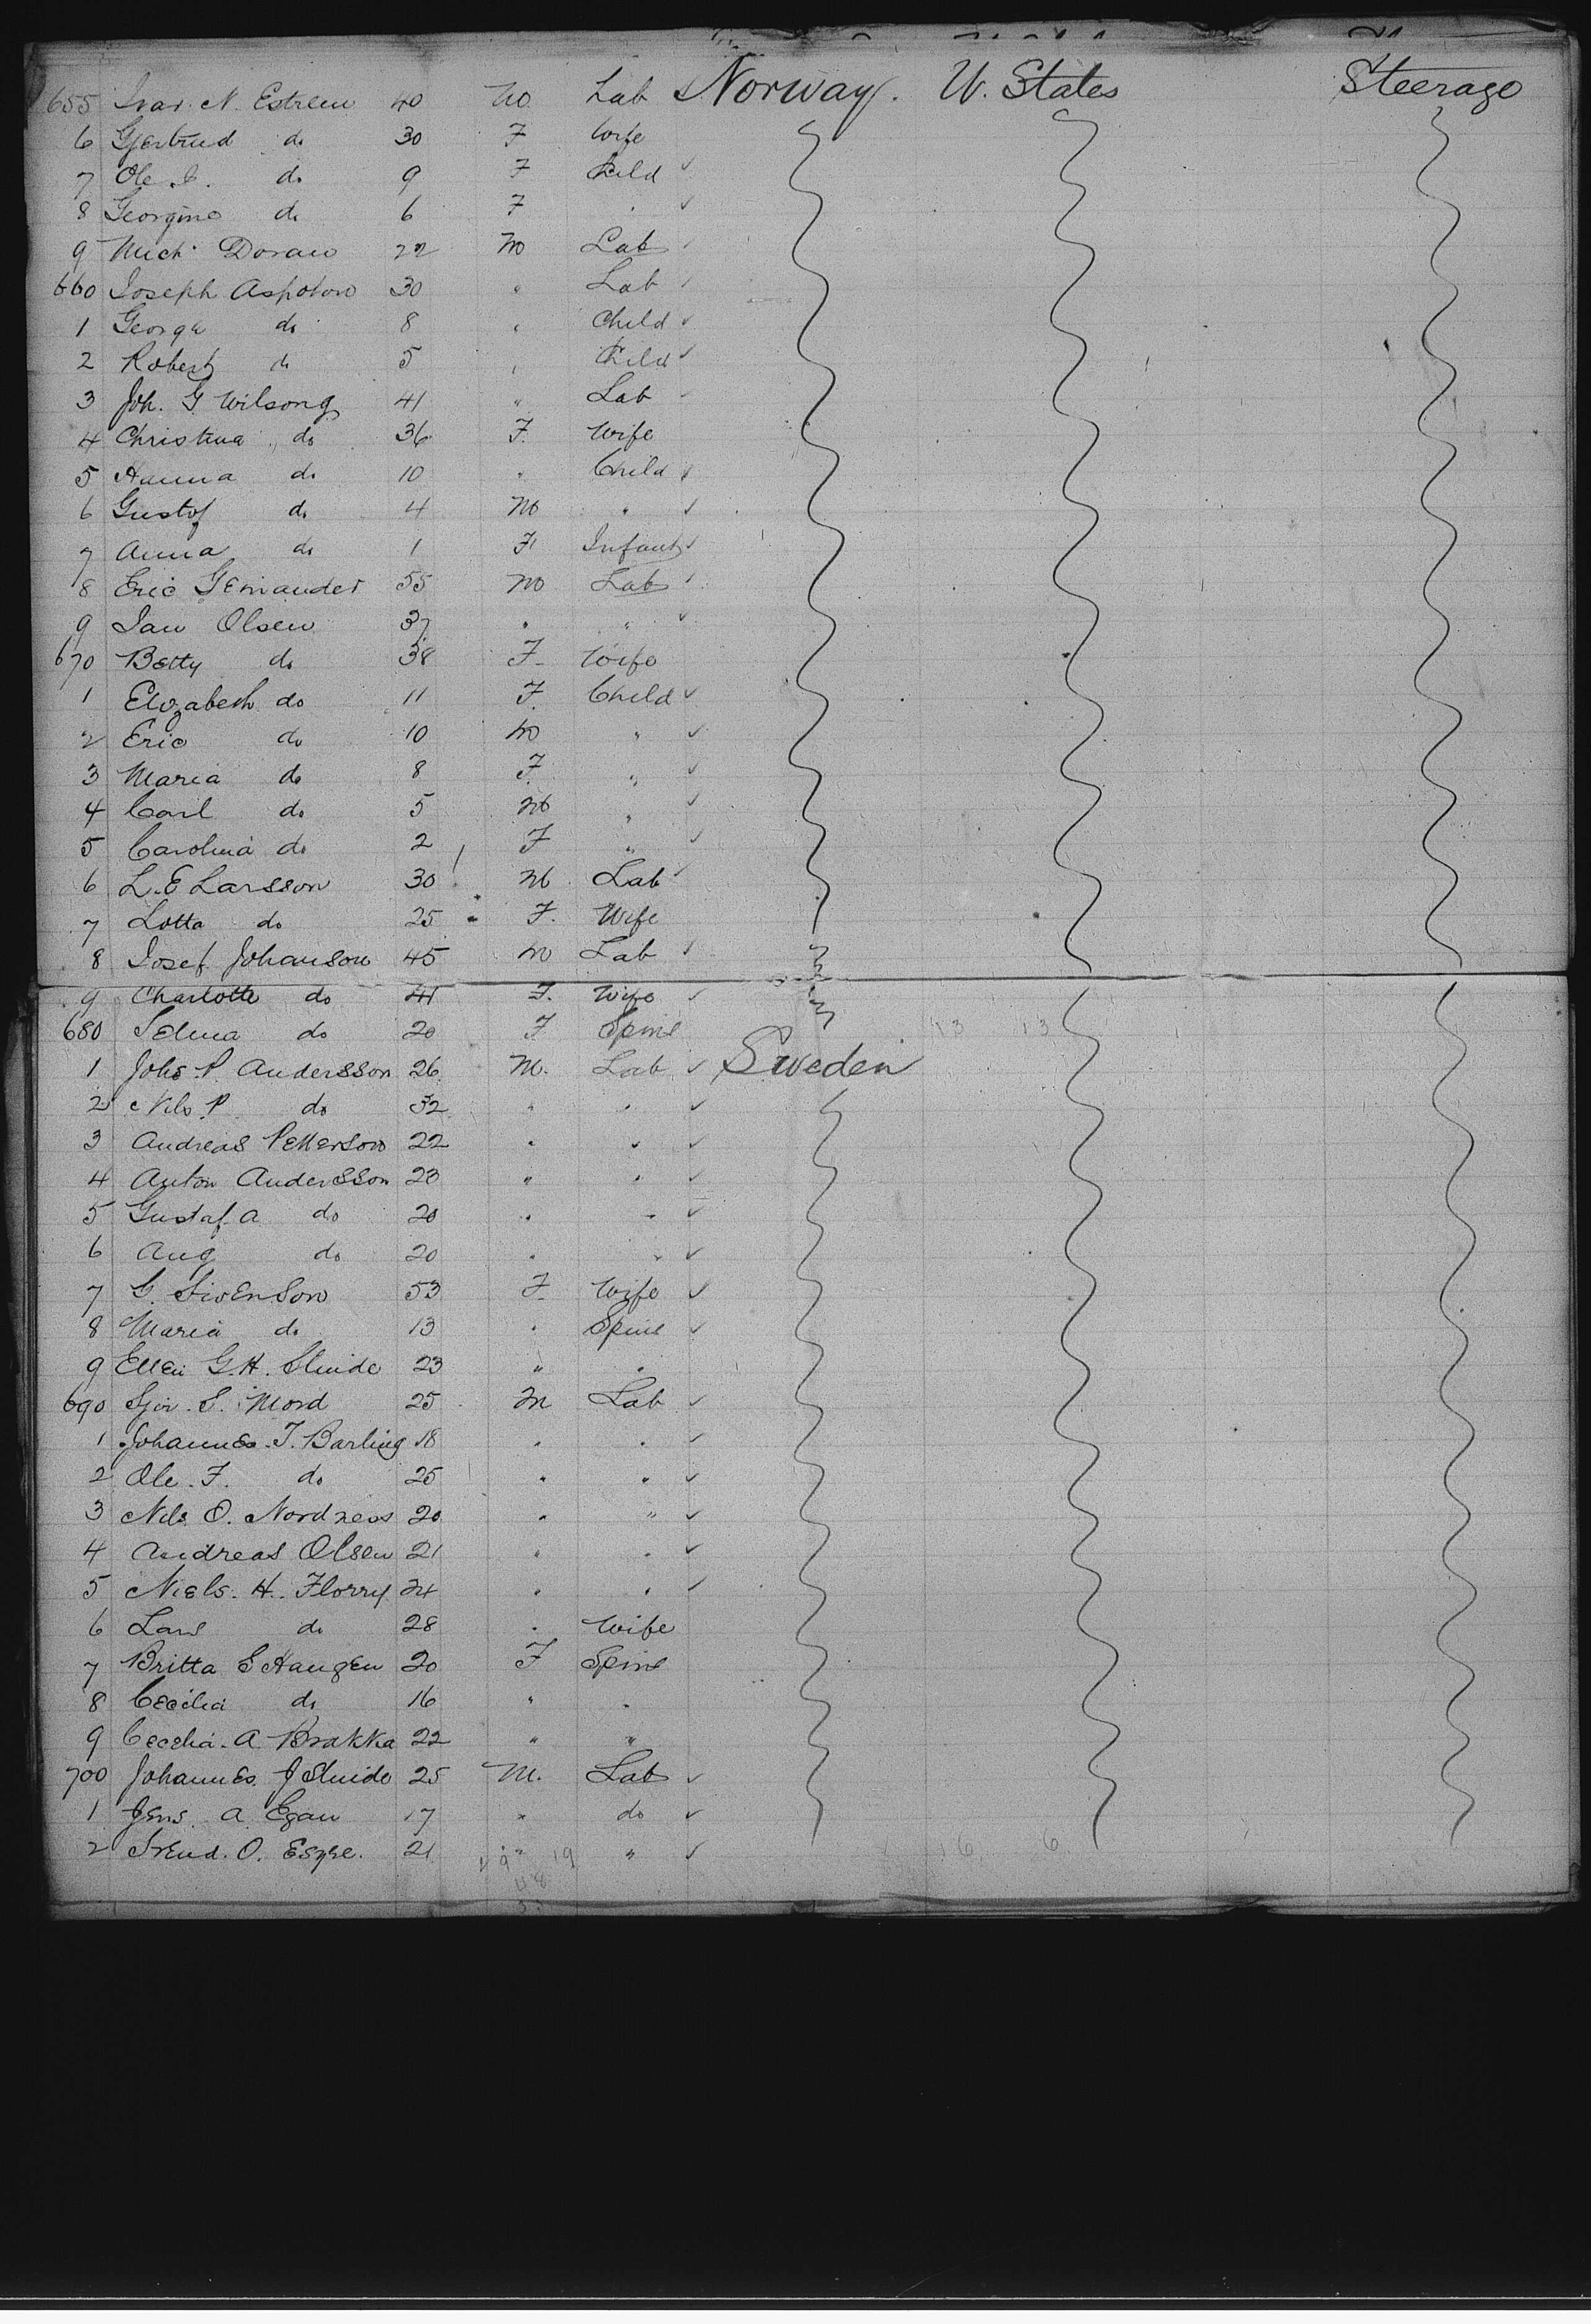 655 Ivar N. Estrem 40 M Lab Norway. U. States Steerage
6 Gjertrud do 30 F Wife
7 Ole I. do 9 F Child ✓
8 Georgine do 6 F " ✓
9 Mich Doran 22 M Lab
660 Joseph 30 " Lab
1 George do 8 " Child ✓
2 Robert do 5 " Child ✓
3 Joh. G Wilsong 41 " Lab
4 Christina do 36 F. Wife
5 Hanna do 10 " Child
6 Gustof do 4 M " ✓
7 Anna do 1 F Infant ✓
8 Eric 55 M Lab
9 Jan Olsen 37 " " ✓
670 Betty do 38 F Wife
1 Elizabeth do 11 F. Child ✓
2 Eric do 10 M " ✓
3 Maria do 8 F. " ✓
4 Carl do 5 M " ✓
5 Carolina do 2 F " ✓
6 L. E Larsson 30 M Lab ✓
7 Lotta do 25 F. Wife
8 Josef Johanson 45 M Lab
9 Charlotte do 41 F. Wife ✓
680 Selma do 20 F Spins 13 13
1 Johs P. Andersson 26 M. Lab ✓ Sweden
2 Nils P. do 52 " " ✓
3 Andreas Petterson 22 " " ✓
4 Anton Andersson 23 " " ✓
5 Gustaf A do 20 " " ✓
6 Aug do 20 " " ✓
7 G. Sivenson 53 F Wife ✓
8 Maria do 13 " Spins ✓
9 Ellen G. H. 23 " "
690 S. Mord 25 M Lab ✓
1 Johannes T. Barling 18 " " ✓
2 Ole. F. do 25 " " ✓
3 Nils O. Nordness 20 " " ✓
4 Andreas Olsen 21 " " ✓
5 Niels. H. Florry 24 " " ✓
6 Lars do 28 " Wife
7 Britta S Haugen 20 F Spins
8 Cecilia do 16 " "
9 Cecelia. A Brakka 22 " "
700 Johannes J 25 M. Lab ✓
1 Jens. A Egan 17 " do ✓
2 O. 21 " " ✓ 16 6